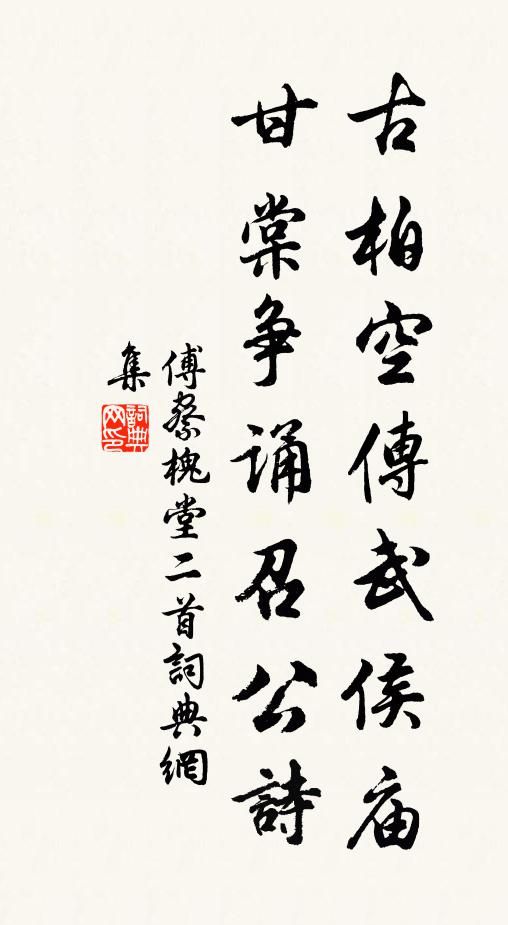 古柏空傳武侯庙
甘棠争诵召公詩
傅察槐堂二首詞典網
集
詞典
网印